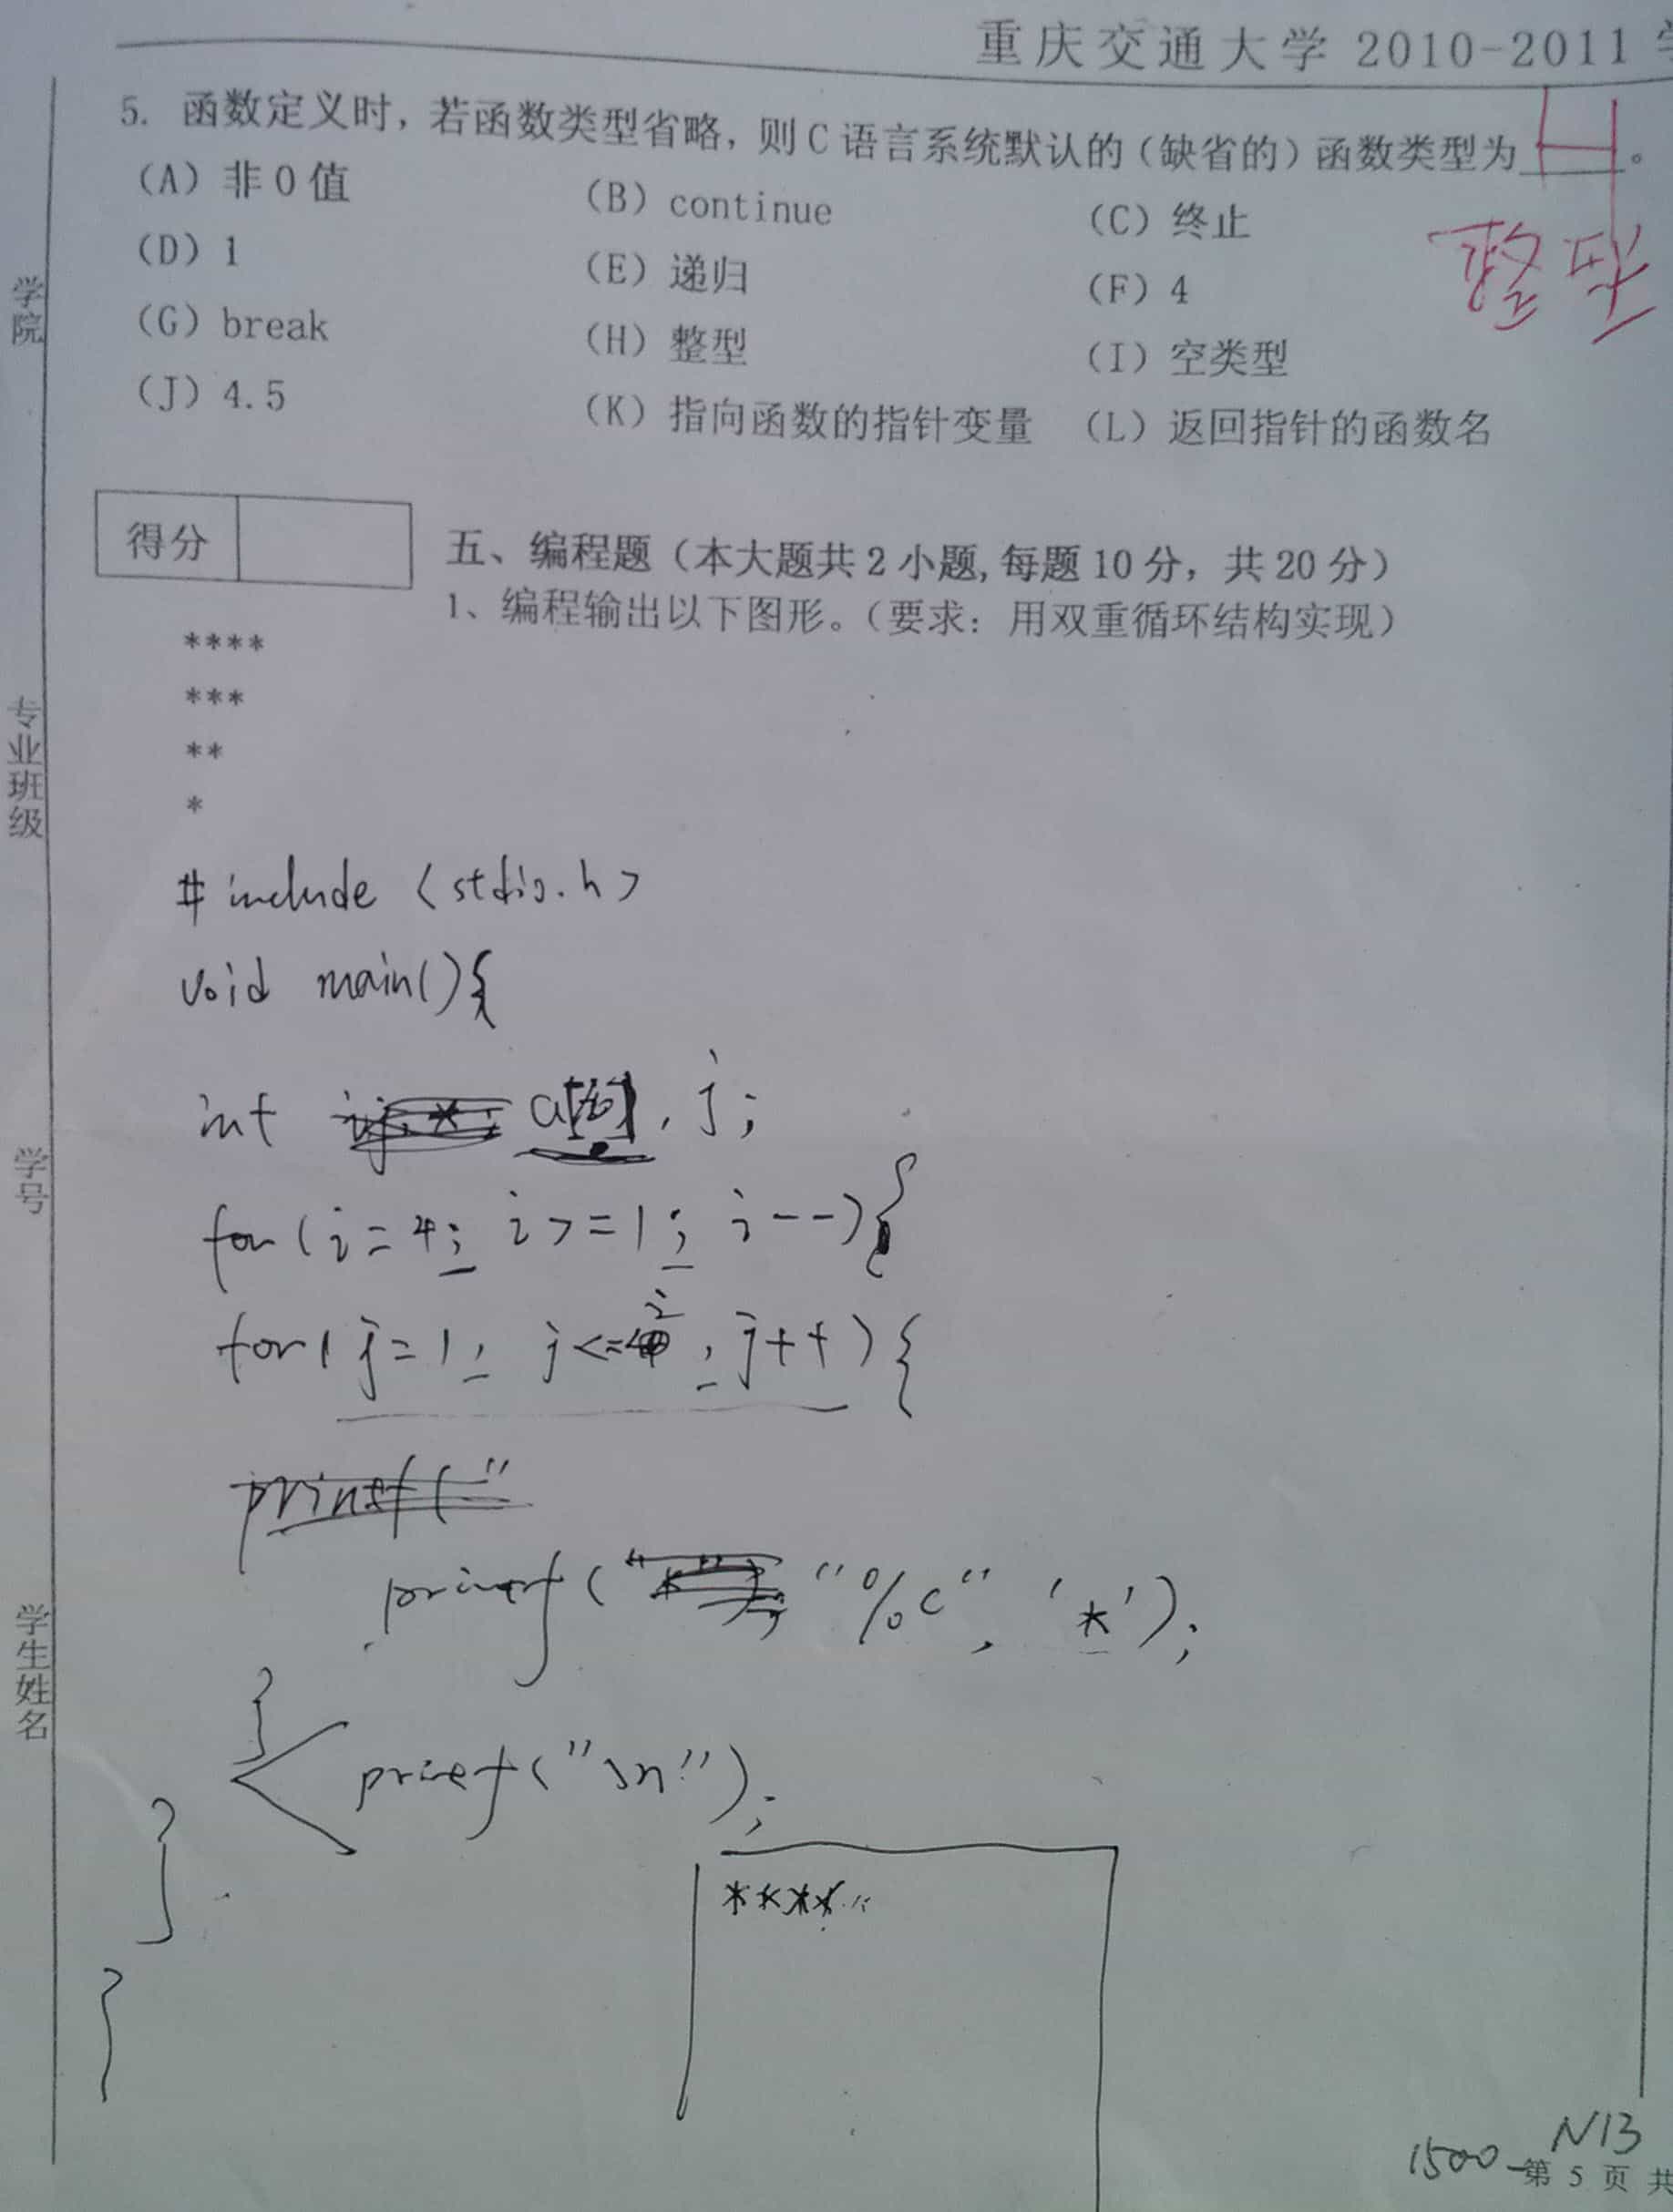 重庆交通大学 2010-2011 学
5. 函数定义时，若函数类型省略，则C语言系统默认的（缺省的）函数类型为 H 。
整型
（A）非0值 （B）continue （C）终止
（D）1 （E）递归 （F）4
（G）break （H）整型 （I）空类型
（J）4.5 （K）指向函数的指针变量 （L）返回指针的函数名
得分
五、编程题（本大题共2小题,每题10分，共20分）
1、编程输出以下图形。（要求：用双重循环结构实现）
****
***
**
*
# include <stdio.h>
void main(){
int , j;
for (i=4; i>=1; i--){
for( j=1; j<=i; j++){
printf("
printf( "%c", '*');
}
printf("\n");
}
}
****
N13
1500
第 5 页 共
学院
专业班级
学号
学生姓名